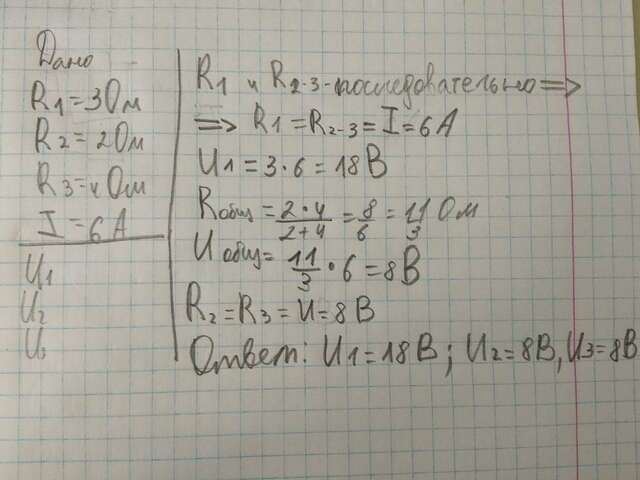 Дано
R1 = 3 Ом
R2 = 2 Ом
R3 = 4 Ом
I = 6 А
U1
U2
U3
R1 и R2-3 - последовательно =>
=> R1 = R2-3 = I = 6 А
U1 = 3 · 6 = 18 В
Rобщ = 2 · 4 / 2 + 4 = 8 / 6 = 11 / 3 Ом
Uобщ = 11 / 3 · 6 = 8 В
R2 = R3 = U = 8 В
Ответ: U1 = 18 В ; U2 = 8 В, U3 = 8 В